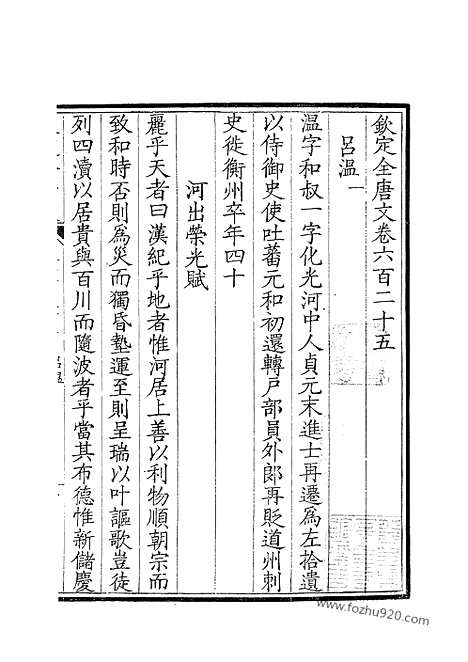 欽定全唐文卷六百二十五
呂溫一
溫字和叔一字化光河中人貞元末進士再遷為左拾遺
以侍御史使吐蕃元和初還轉戶部員外郎再貶道州刺
史徙衡州卒年四十
河出榮光賦
麗乎天者曰漢紀乎地者惟河居上善以利物順朝宗而
致和時否則為災而獨昏墊運至則呈瑞以叶謳歌豈徒
列四瀆以居貴與百川而隨波者乎當其布德惟新儲慶
www.fozhu920.com